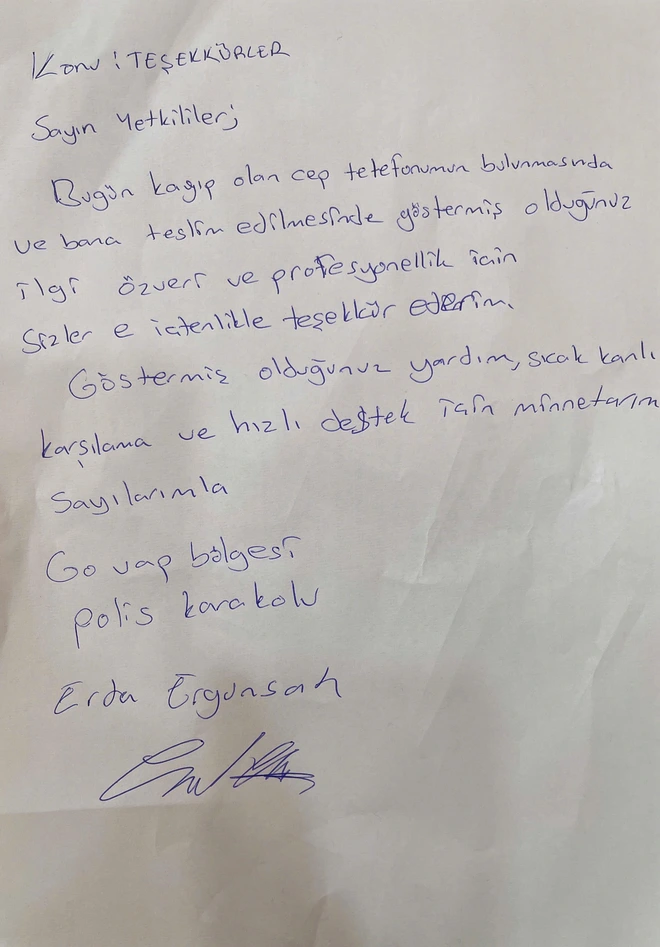 Konu : TEŞEKKÜRLER
Sayın Yetkililer;
Bugün kayıp olan cep tetefonumun bulunmasında
ve bana teslim edilmesinde göstermiş olduğunuz
ilgi özveri ve profesyonellik için
Sizler e içtenlikle teşekkür ederim.
Göstermiş olduğunuz yardım, sıcak kanlı
karşılama ve hızlı destek için minnetarım
Sayılarımla
Go vap bölgesi
polis karakolu
Erda Ergunsah